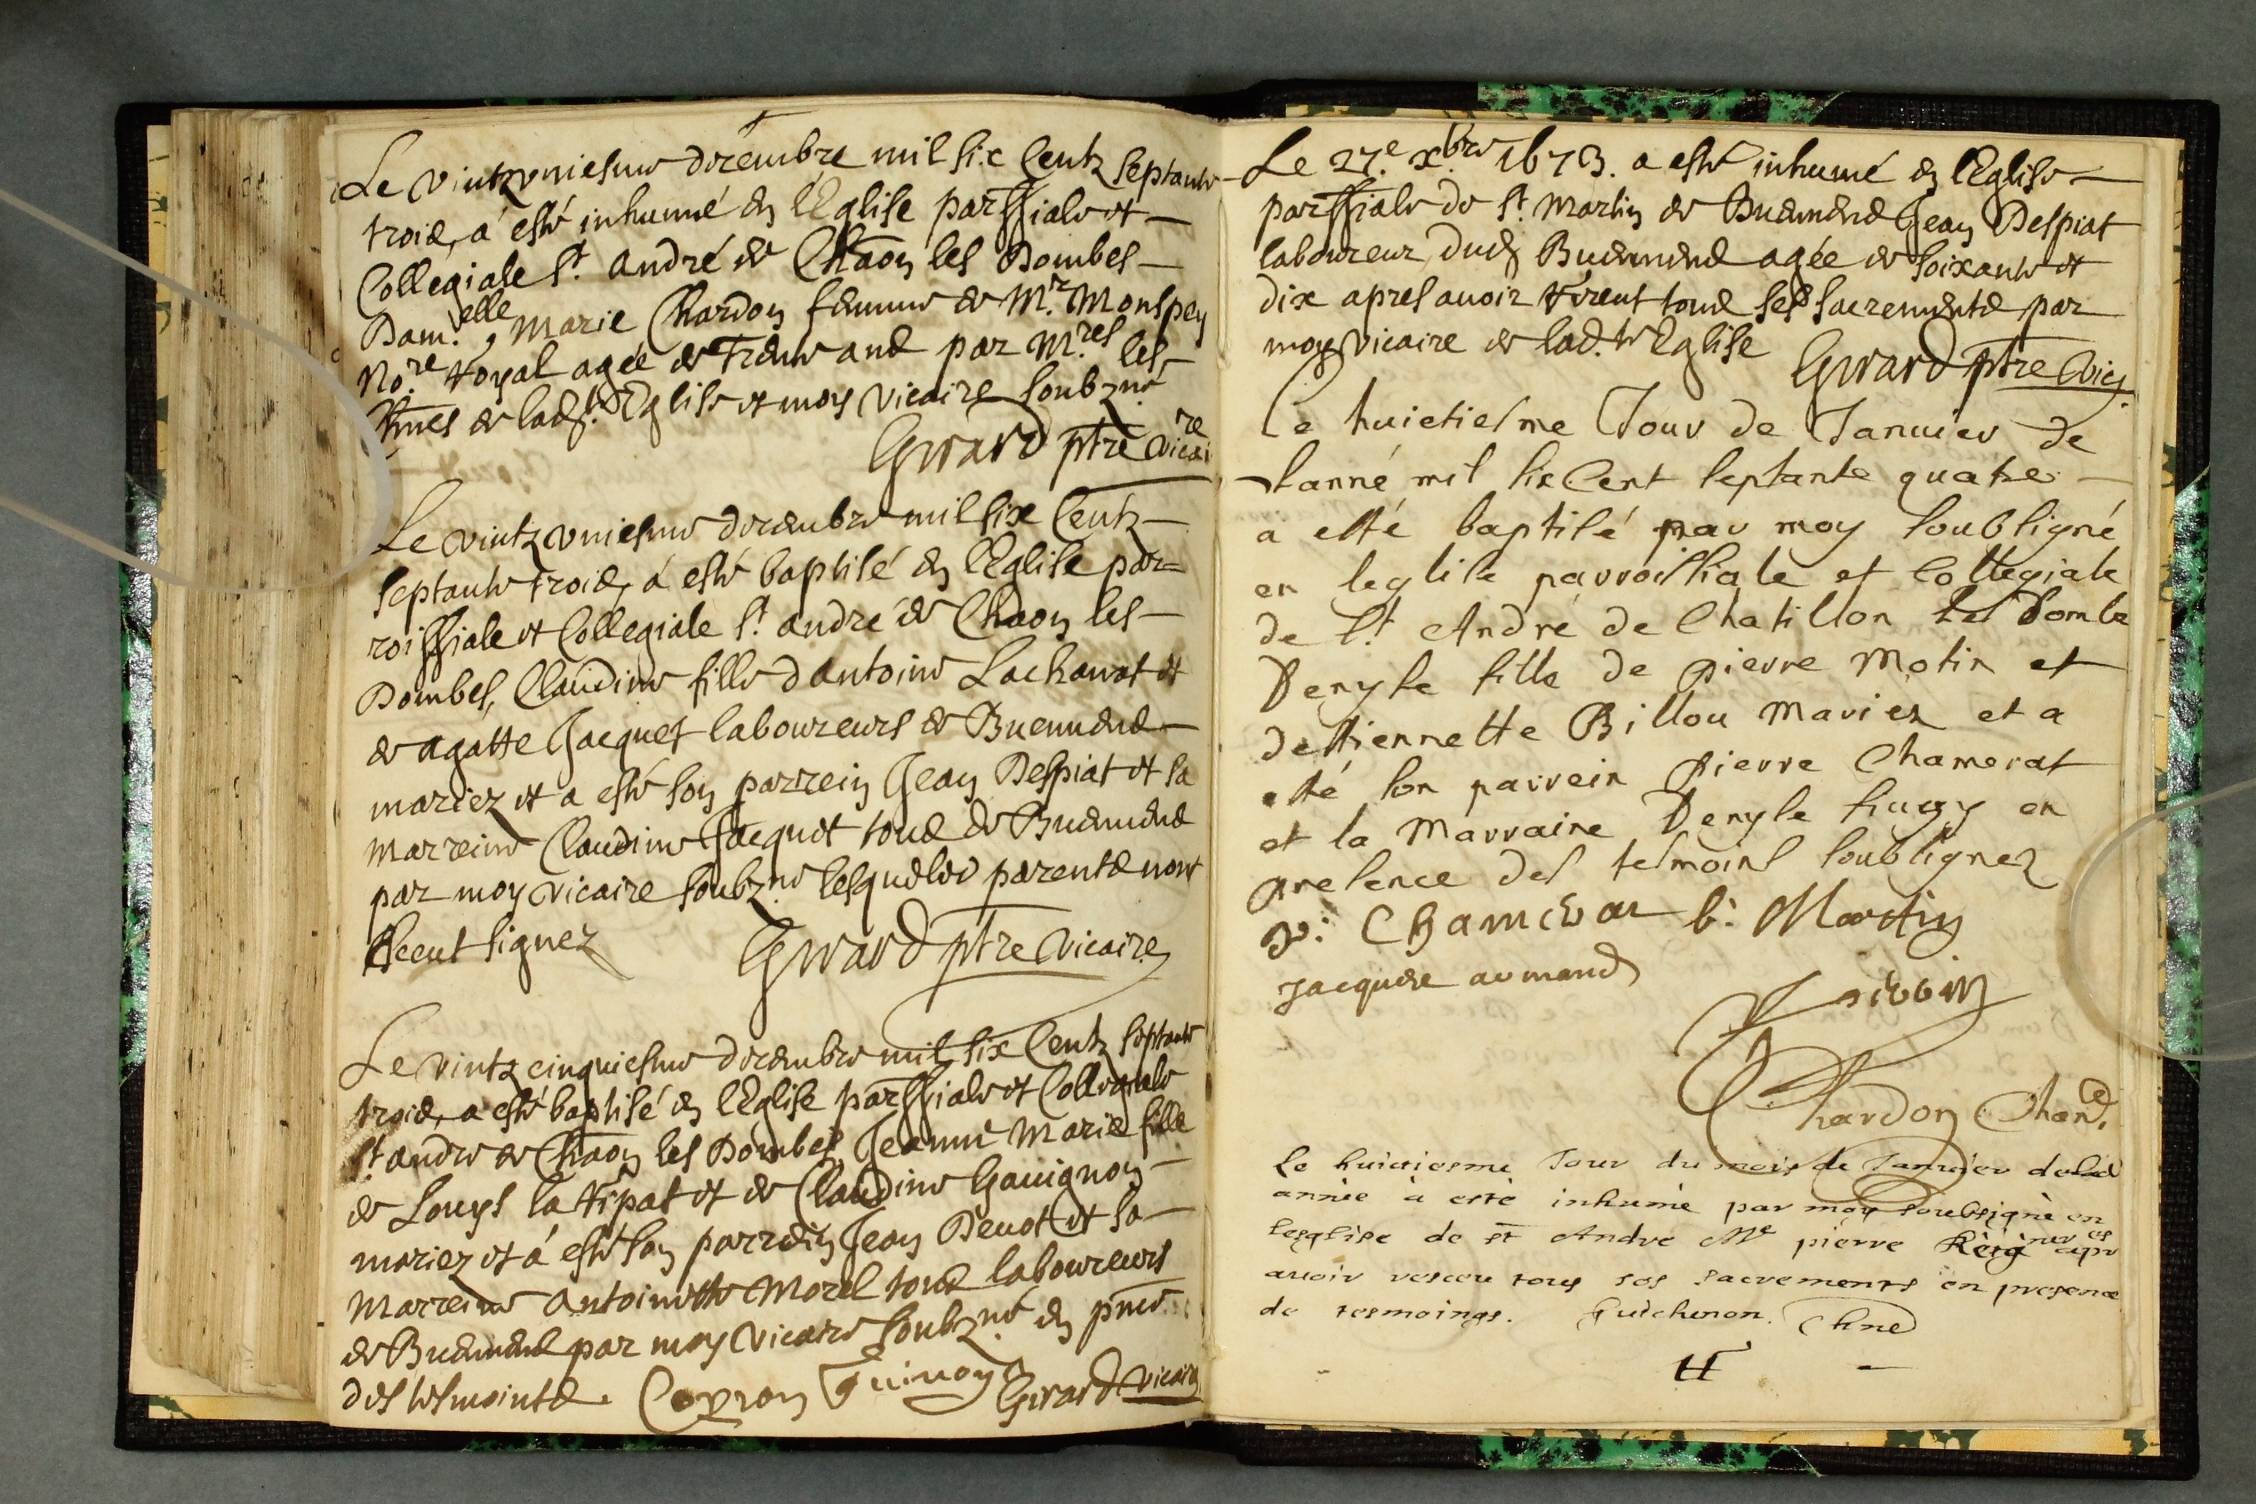 Le vintzuniesme décembre mil six Centz septante
trois, a esté inhumé en l'Eglise parssiale et
Collegiale St. André de Chaon les Dombes
Dam.elle Marie Chardon femme de Mr. Monspey
No.re Royal agée de Trente ans par M.res les
Chnes de lad. Eglise et moy vicaire soubz.né
Girard ptre vicaire
Le vintzuniesme decembre mil six Centz
septante trois, a esté baptisé en l'Eglise par=
roissiale et Collegiale St. andré de Chaon les
Dombes, Claudine fille d'antoine Lachanat et
de agatte Jacquet laboureurs de Buenens
mariez et a esté son parrein Jean Despiat et sa
marreine Claudine Jacquet tous de Buenens
par moy vicaire soubz.né lesqueles parents nont
sceut signez Girard ptre vicaire
Le vintz cinquiesme decembre mil six Centz septante
trois, a esté baptisé en l'Eglise parssiale et Collegiale
St andre de Chaon les Dombes Jeanne Marie fille
de Louys la et de Claudine Gauignon
mariez et a esté son parrein Jean Deuot et sa
marreine antoinette Morel tous laboureurs
de Buenens par moy vicaire soubz.né en pnce
des tesmoints. Guinoy Girard vicaire
Le 27.e xbre 1673. a esté inhumé en l'Eglise
parssiale de St. Martin de Buenens Jean Despiat
laboureur dud Buenens agée de soixante et
dix apres auoir receut tous ses sacrements par
moy vicaire de lad. Eglise Girard ptre vic.
Le huictiesme Jour de Januier de
lanné mil six Cent septante quatre
a esté baptisé par moy soubsigné
en leglise parroissiale et Collegiale
de St André de Chatillon les Dombe
Denyse fille de pierre Motin et
dettiennette Billou mariez et a
esté son parrein pierre Chamerat
et la marraine Denyse en
presence des tesmoins soubsignez
p: Chamerat b: Martin
Jacques armand
Chardon Chan.e
Le huictiesme Jour du mois de Januier delad
année à esté inhumé par moy soubsigné en
lesglise de st Andre Me pierre apres
auoir receu tous ses sacrements en presence
de tesmoings. Guichenon. Chne